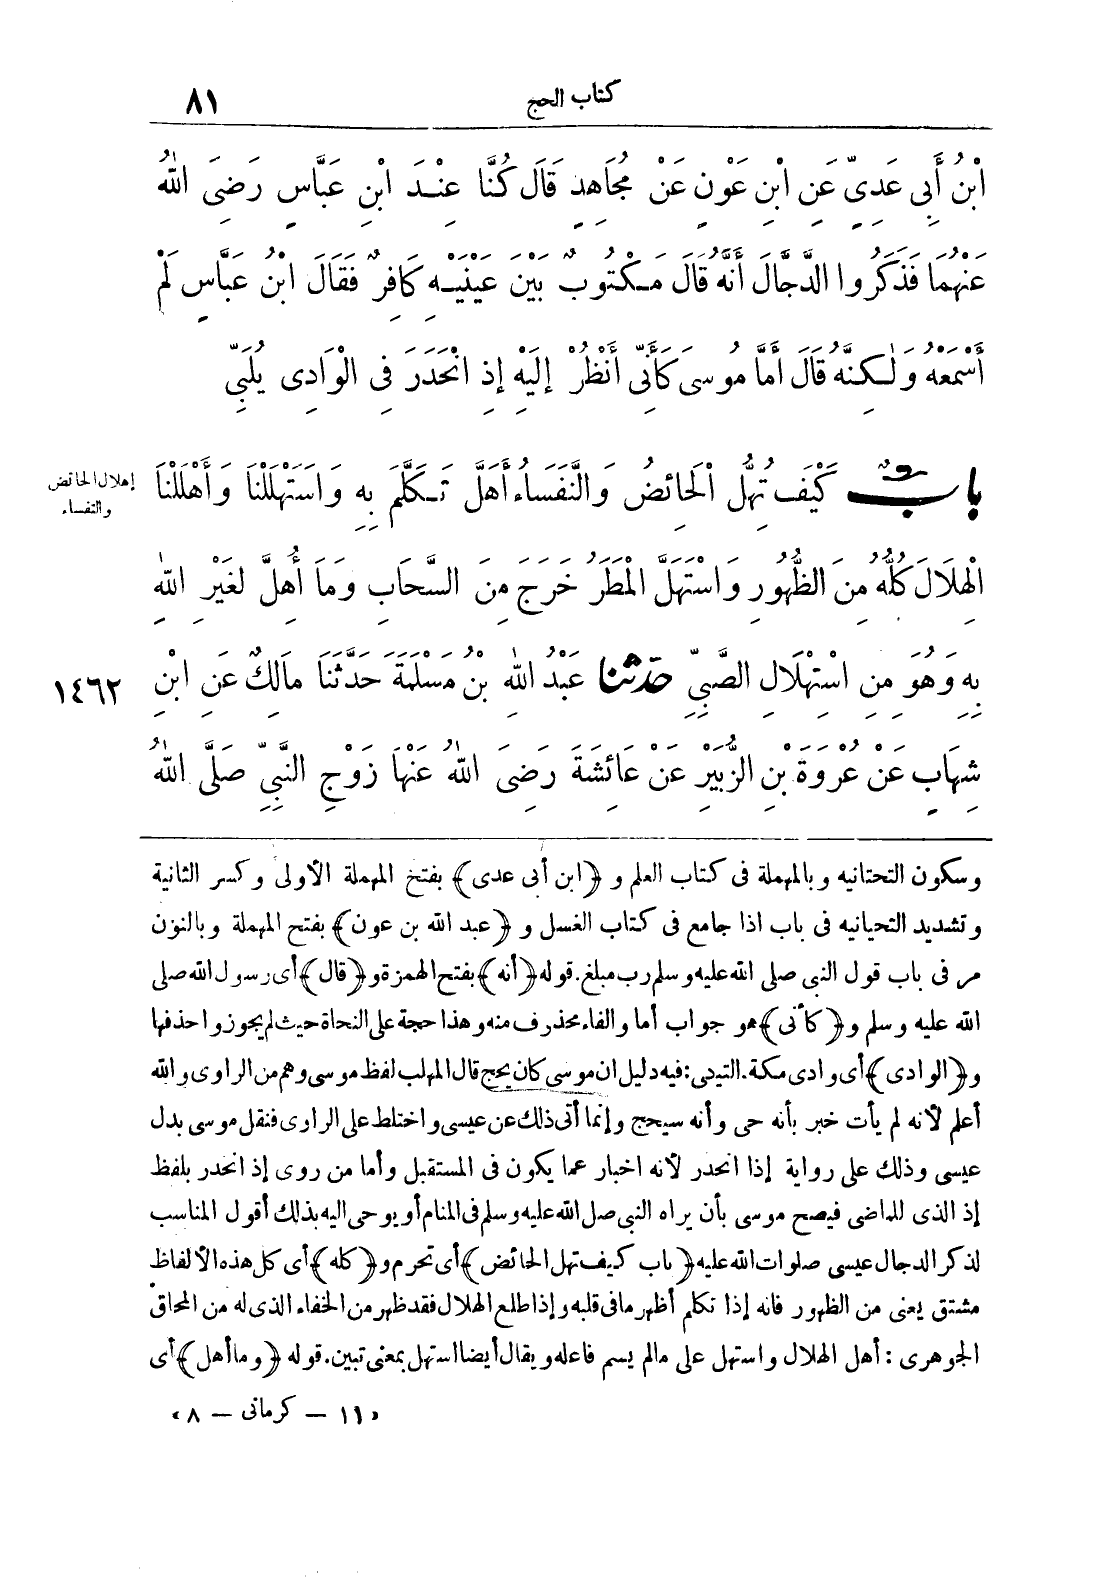 كتاب الحج
٨١
ابْنُ أَبِي عَدِيٍّ عَنِ ابْنِ عَوْنٍ عَنْ مُجَاهِدٍ قَالَ كُنَّا عِنْدَ ابْنِ عَبَّاسٍ رَضِىَ اللّٰهُ
عَنْهُمَا فَذَكَرُوا الدَّجَّالَ أَنَّهُ قَالَ مَكْتُوبٌ بَيْنَ عَيْنَيْهِ كَافِرٌ فَقَالَ ابْنُ عَبَّاسٍ لَمْ
أَسْمَعْهُ وَلٰكِنَّهُ قَالَ أَمَّا مُوسَى كَأَنِّى أَنْظُرُ إِلَيْهِ إِذِ انْحَدَرَ فِى الْوَادِى يُلَبِّى
بَابٌ كَيْفَ تُهِلُّ الْحَائِضُ وَالنُّفَسَاءُ أَهَلَّ تَكَلَّمَ بِهِ وَاسْتَهْلَلْنَا وَأَهْلَلْنَا
إهلال الحائض
والنفساء
الْهِلَالَ كُلُّهُ مِنَ الظُّهُورِ وَاسْتَهَلَّ الْمَطَرُ خَرَجَ مِنَ السَّحَابِ وَمَا أُهِلَّ لِغَيْرِ اللّٰهِ
بِهِ وَهُوَ مِنِ اسْتِهْلَالِ الصَّبِىِّ حَدَّثَنَا عَبْدُ اللّٰهِ بْنُ مَسْلَمَةَ حَدَّثَنَا مَالِكٌ عَنِ ابْنِ
١٤٦٢
شِهَابٍ عَنْ عُرْوَةَ بْنِ الزُّبَيْرِ عَنْ عَائِشَةَ رَضِىَ اللّٰهُ عَنْهَا زَوْجِ النَّبِىِّ صَلَّى اللّٰهُ
وسكون التحتانيه وبالمهملة فى كتاب العلم و ﴿ابن أبى عدى﴾ بفتح المهملة الأولى وكسر الثانية
وتشديد التحيانيه فى باب اذا جامع فى كتاب الغسل و ﴿عبد الله بن عون﴾ بفتح المهملة وبالنون
مر فى باب قول النبى صلى الله عليه وسلم رب مبلغ. قوله ﴿أنه﴾ بفتح الهمزة و ﴿قال﴾ أى رسول الله صلى
الله عليه وسلم و ﴿كأنى﴾ هو جواب أما والفاء محذوف منه وهذا حجة على النحاة حيث لم يجوزوا حذفها
و ﴿الوادى﴾ أى وادى مكة. التيمى: فيه دليل ان موسى كان يحج قال المهلب لفظ موسى وهم من الراوى والله
أعلم لأنه لم يأت خبر بأنه حى وأنه سيحج وإنما أتى ذلك عن عيسى واختلط على الراوى فنقل موسى بدل
عيسى وذلك على رواية إذا انحدر لأنه اخبار عما يكون فى المستقبل وأما من روى إذ انحدر بلفظ
إذ الذى للماضى فيصح موسى بأن يراه النبى صلى الله عليه وسلم فى المنام أو يوحى اليه بذلك أقول المناسب
لذكر الدجال عيسى صلوات الله عليه ﴿باب كيف تهل الحائض﴾ أى تحرم و ﴿كله﴾ أى كل هذه الألفاظ
مشتق يعنى من الظهور فانه إذا تكلم أظهر مافى قلبه وإذا طلع الهلال فقد ظهر من الخفاء الذى له من المحاق
الجوهرى: أهل الهلال واستهل على مالم يسم فاعله ويقال أيضا استهل بمعنى تبين. قوله ﴿وما أهل﴾ أى
«١١ – كرمانى – ٨»